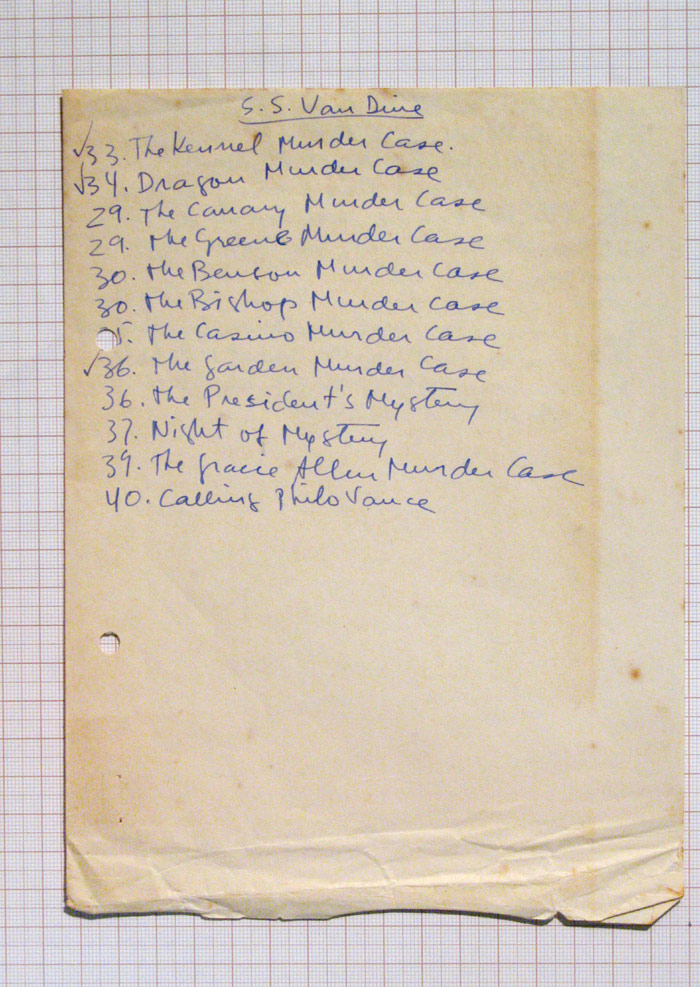 S. S. Van Dine
√33. The Kennel Murder Case.
√34. Dragon Murder Case
29. The Canary Murder Case
29. The Greene Murder Case
30. The Benson Murder Case
30. The Bishop Murder Case
5. The Casino Murder Case
√36. The Garden Murder Case
36. The President's Mystery
37. Night of Mystery
39. The Gracie Allen Murder Case
40. Calling Philo Vance